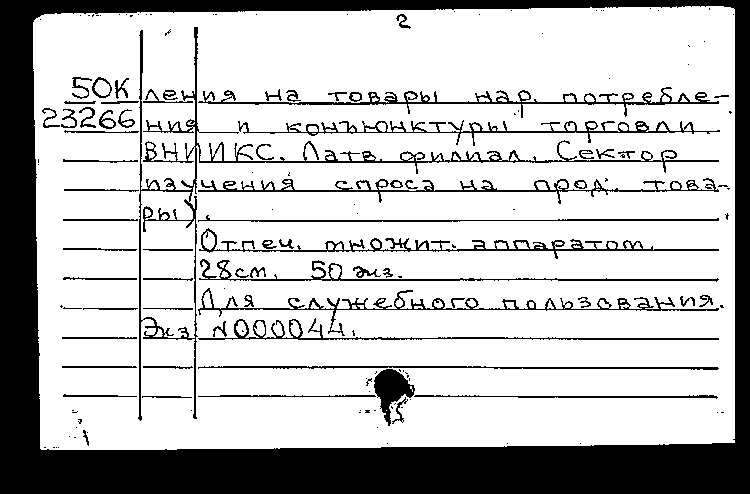 2
50К ления на товары нар. потребле-
23266 ния и конъюнктуры торговли.
ВНИИКС. Латв. филиал. Сектор
изучения спроса на прод. това-
ры).
Отпеч. множит. аппаратом.
28см. 50 экз.
Для служебного пользования.
Экз N000044.